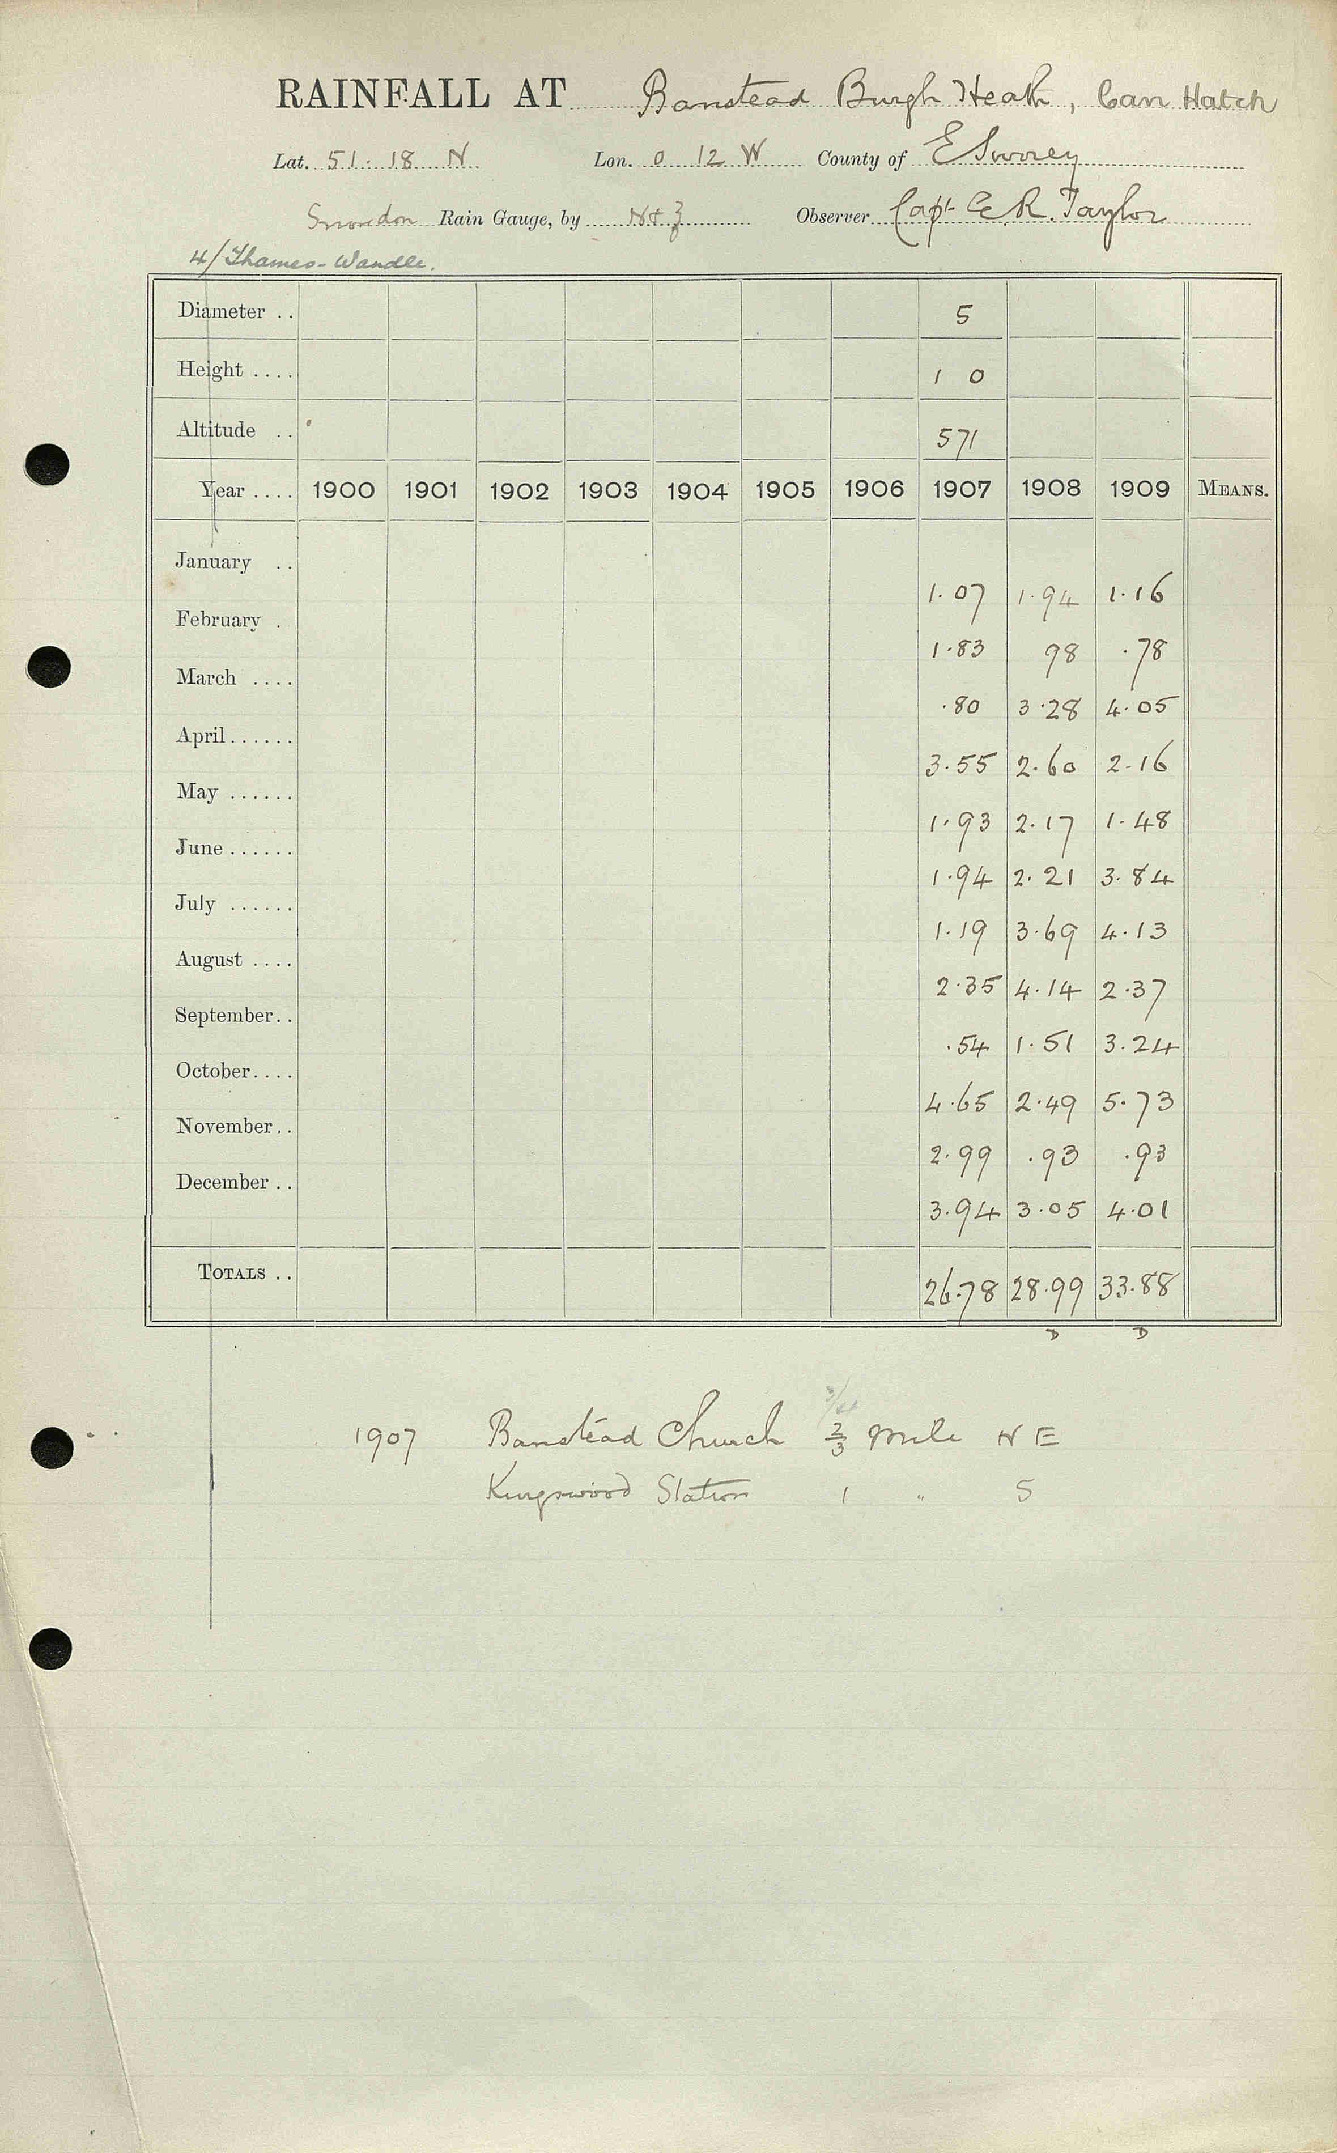 RAINFALL AT Banstead Burgh Heath, Can Hatch
Lat. 51. 18 N Lon. 0 12 W County of E Surrey
Snowdon Rain Gauge, by N & Z Observer Capt. C R. Taylor
4/ Thames-Wandle.
Diameter .. 5
Height .... 1 0
Altitude .. 571
Year .... 1900 1901 1902 1903 1904 1905 1906 1907 1908 1909 MEANS.
January .. 1.07 1.94 1.16
February . 1.83 98 .78
March .... .80 3.28 4.05
April...... 3.55 2.60 2.16
May ...... 1.93 2.17 1.48
June ...... 1.94 2.21 3.84
July ...... 1.19 3.69 4.13
August .... 2.35 4.14 2.37
September.. .54 1.51 3.24
October.... 4.65 2.49 5.73
November.. 2.99 .93 .93
December .. 3.94 3.05 4.01
TOTALS .. 26.78 28.99 33.88
D D
3/4
1907 Banstead Church 2/3 mile N E
Kingswood Station 1 " S